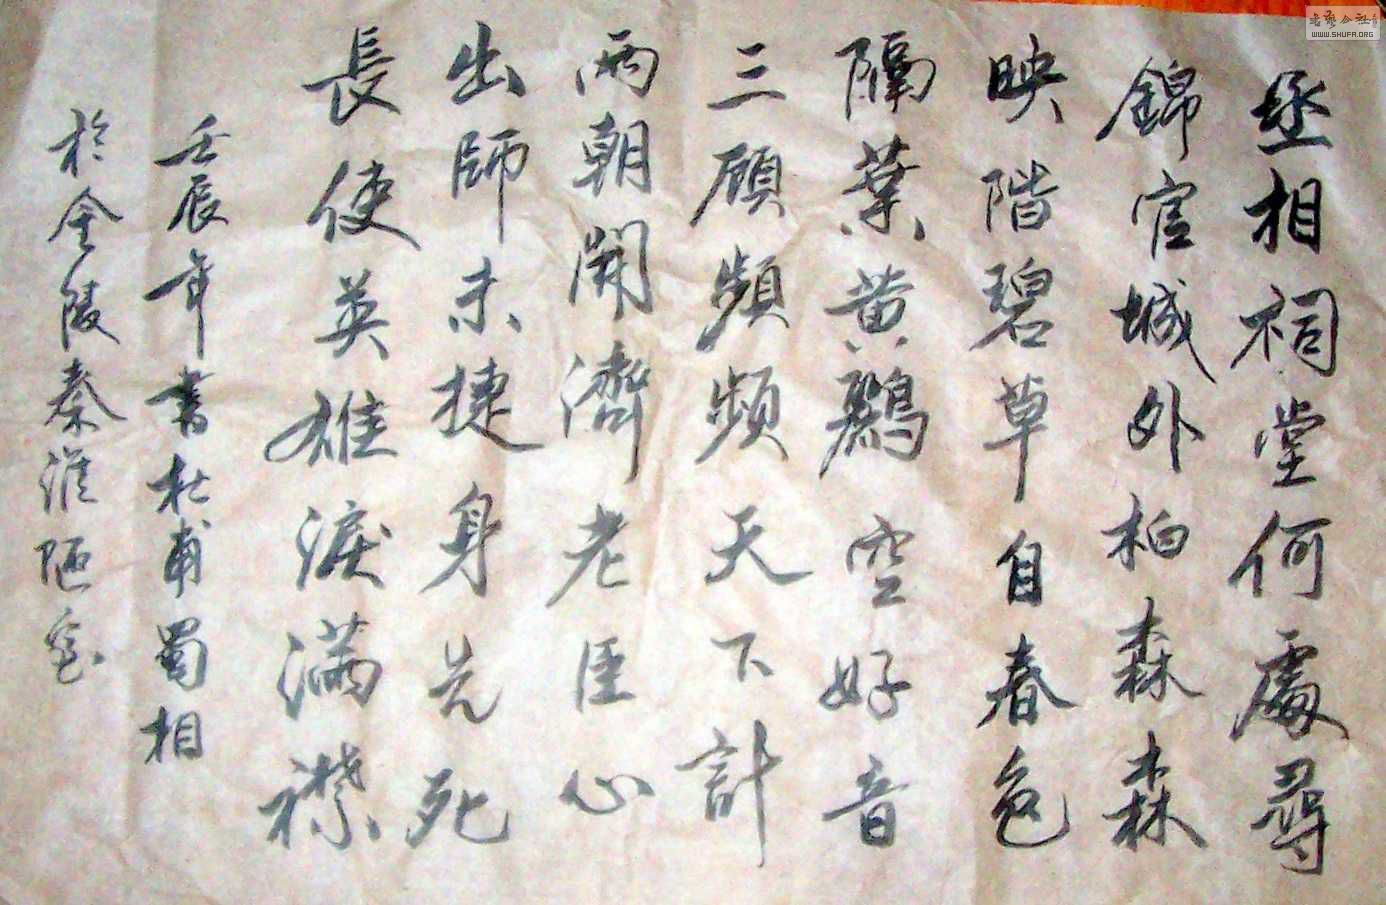 丞相祠堂何處尋
錦官城外柏森森
映階碧草自春色
隔葉黄鸝空好音
三顧頻頻天下計
兩朝開濟老臣心
出師未捷身先死
長使英雄淚滿襟
壬辰年書杜甫蜀相
於金陵秦淮陋室
WWW.SHUFA.ORG